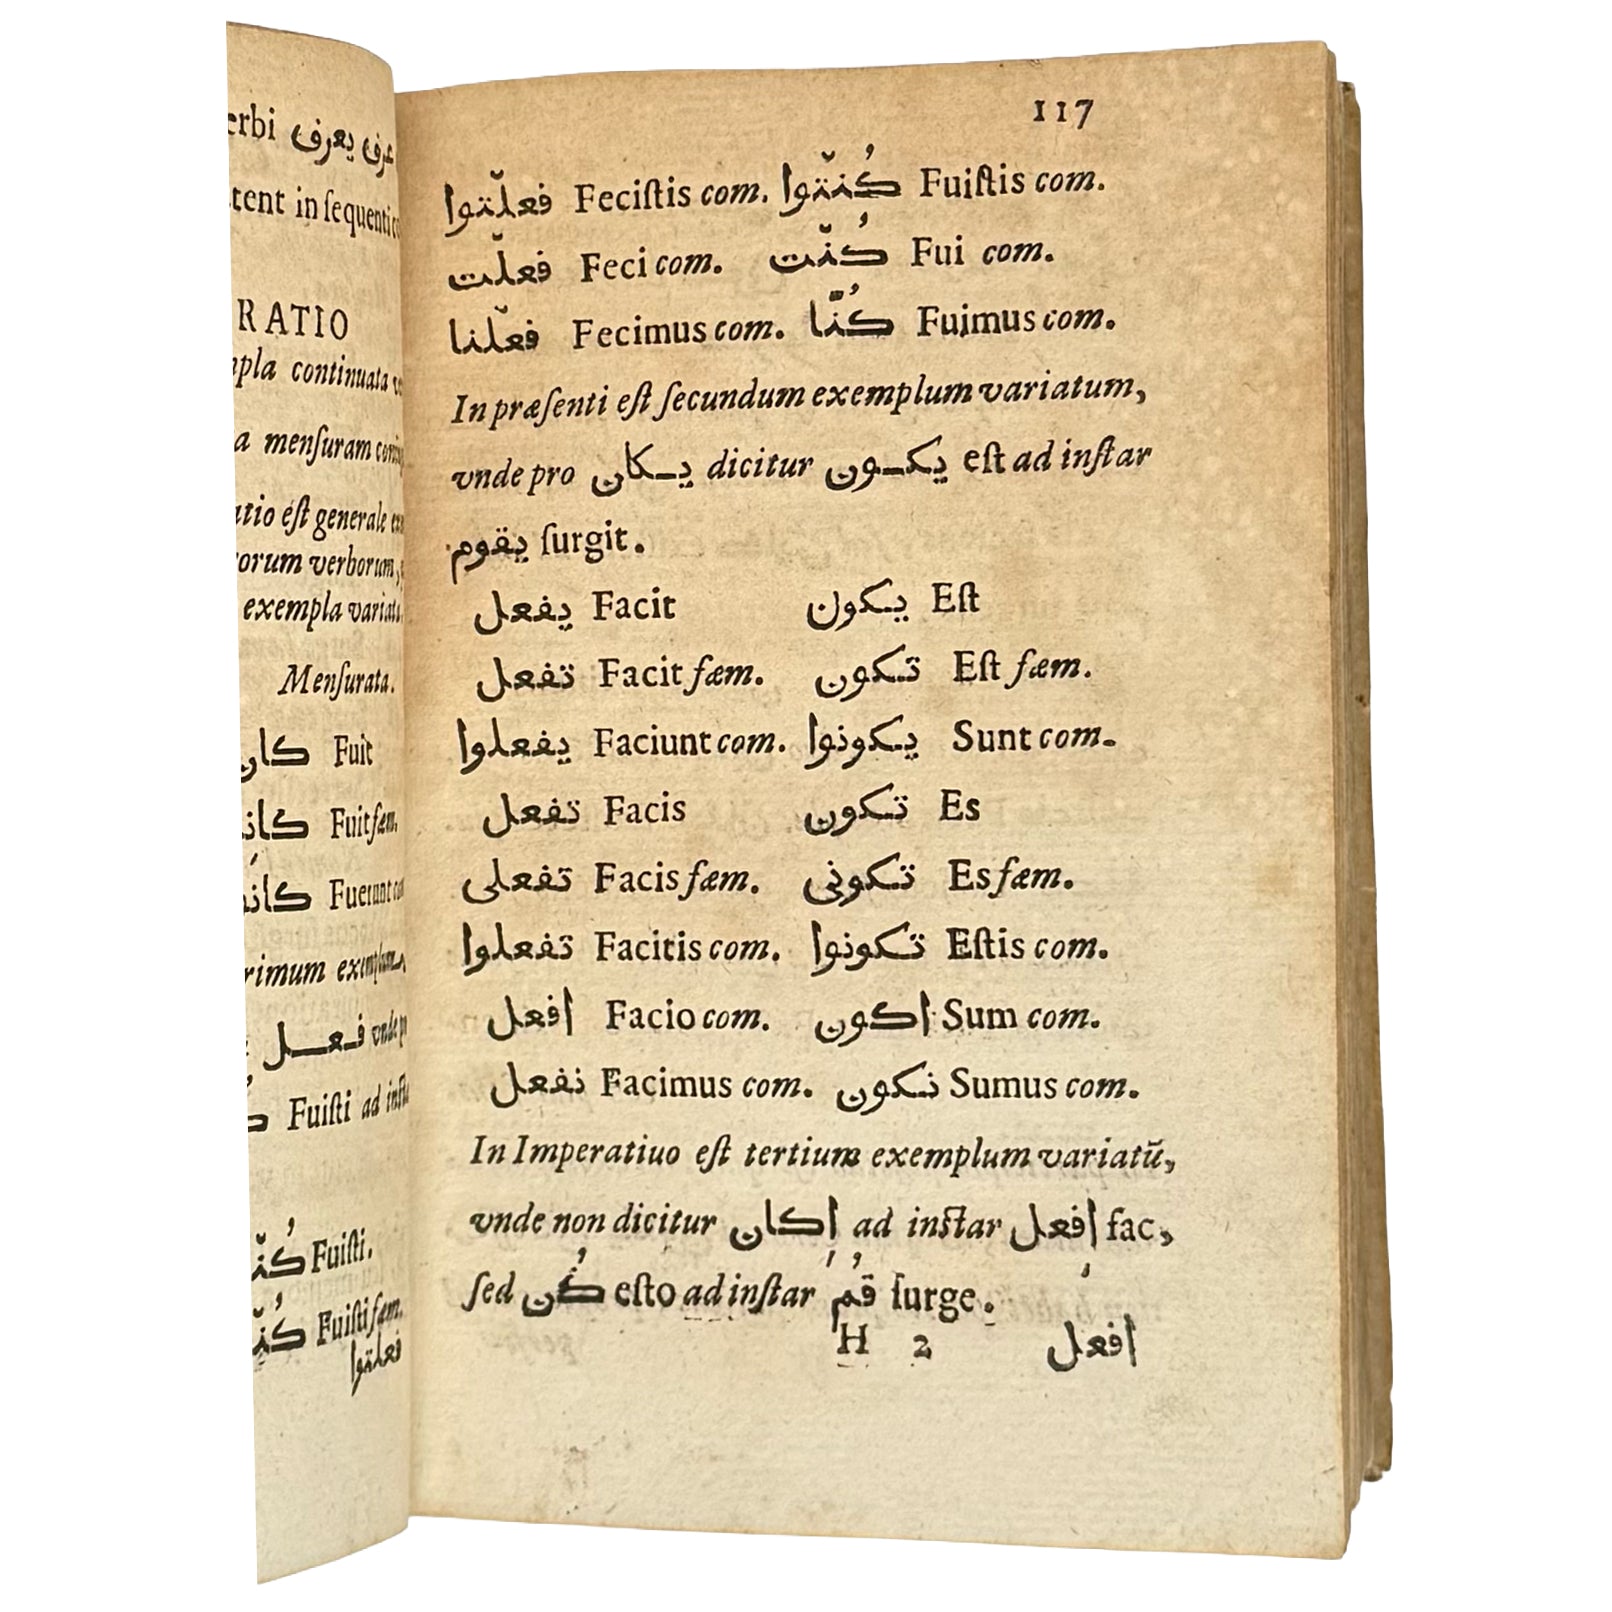 erbi عرف يعرف
tent in ſequenti
RATIO
continuata
a menſuram
eſt generale
verborum,
exempla variat
Menſurata.
كان Fuit
Fuit fæm.
Fuerunt
exemplum
فعل vnde
Fuiſti ad inſta
كُنّت Fuiſti.
كُنّت Fuiſti fæm.
فعلتوا
117
فعلّتوا Feciſtis com. كُنتّوا Fuiſtis com.
فعلّت Feci com. كُنّت Fui com.
فعلّنا Fecimus com. كُنّا Fuimus com.
In præſenti eſt ſecundum exemplum variatum,
vnde pro يـكان dicitur يكـون eſt ad inſtar
يقوم ſurgit.
يفعل Facit يكون Eſt
تفعل Facit fæm. تكون Eſt fæm.
يفعلوا Faciunt com. يكونوا Sunt com.
تفعل Facis تكون Es
تفعلى Facis fæm. تكونى Es fæm.
تفعلوا Facitis com. تكونوا Eſtis com.
افعل Facio com. اكون Sum com.
نفعل Facimus com. نكون Sumus com.
In Imperatiuo eſt tertium exemplum variatū,
vnde non dicitur اِكان ad inſtar افعل fac,
ſed كُن eſto ad inſtar قُم ſurge.
H 2 افعل